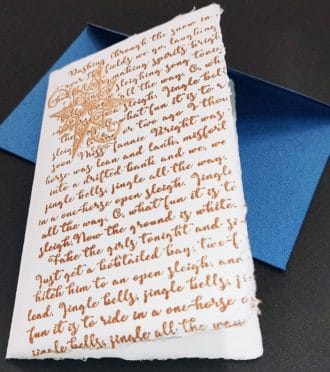 Dashing through the snow in
we go, laughing
making spirits bright
sleighing song tonig
all the way. O wh
sleigh. Jingle bells
what fun it is to r
or two ago, I thou
soon Miss Fannie Bright was
horse was lean and lank, misfort
into a drifted bank and we, we
jingle bells, jingle all the way.
in a one-horse open sleigh. Jingle
all the way. O, what fun it is to
sleigh. Now the ground is white
Take the girls tonight and si
Just get a bobtailed bay; two-f
hitch him to an open sleigh, and
lead. Jingle bells, jingle bells, ji
fun it is to ride in a one-horse o
jingle bells, jingle all the way